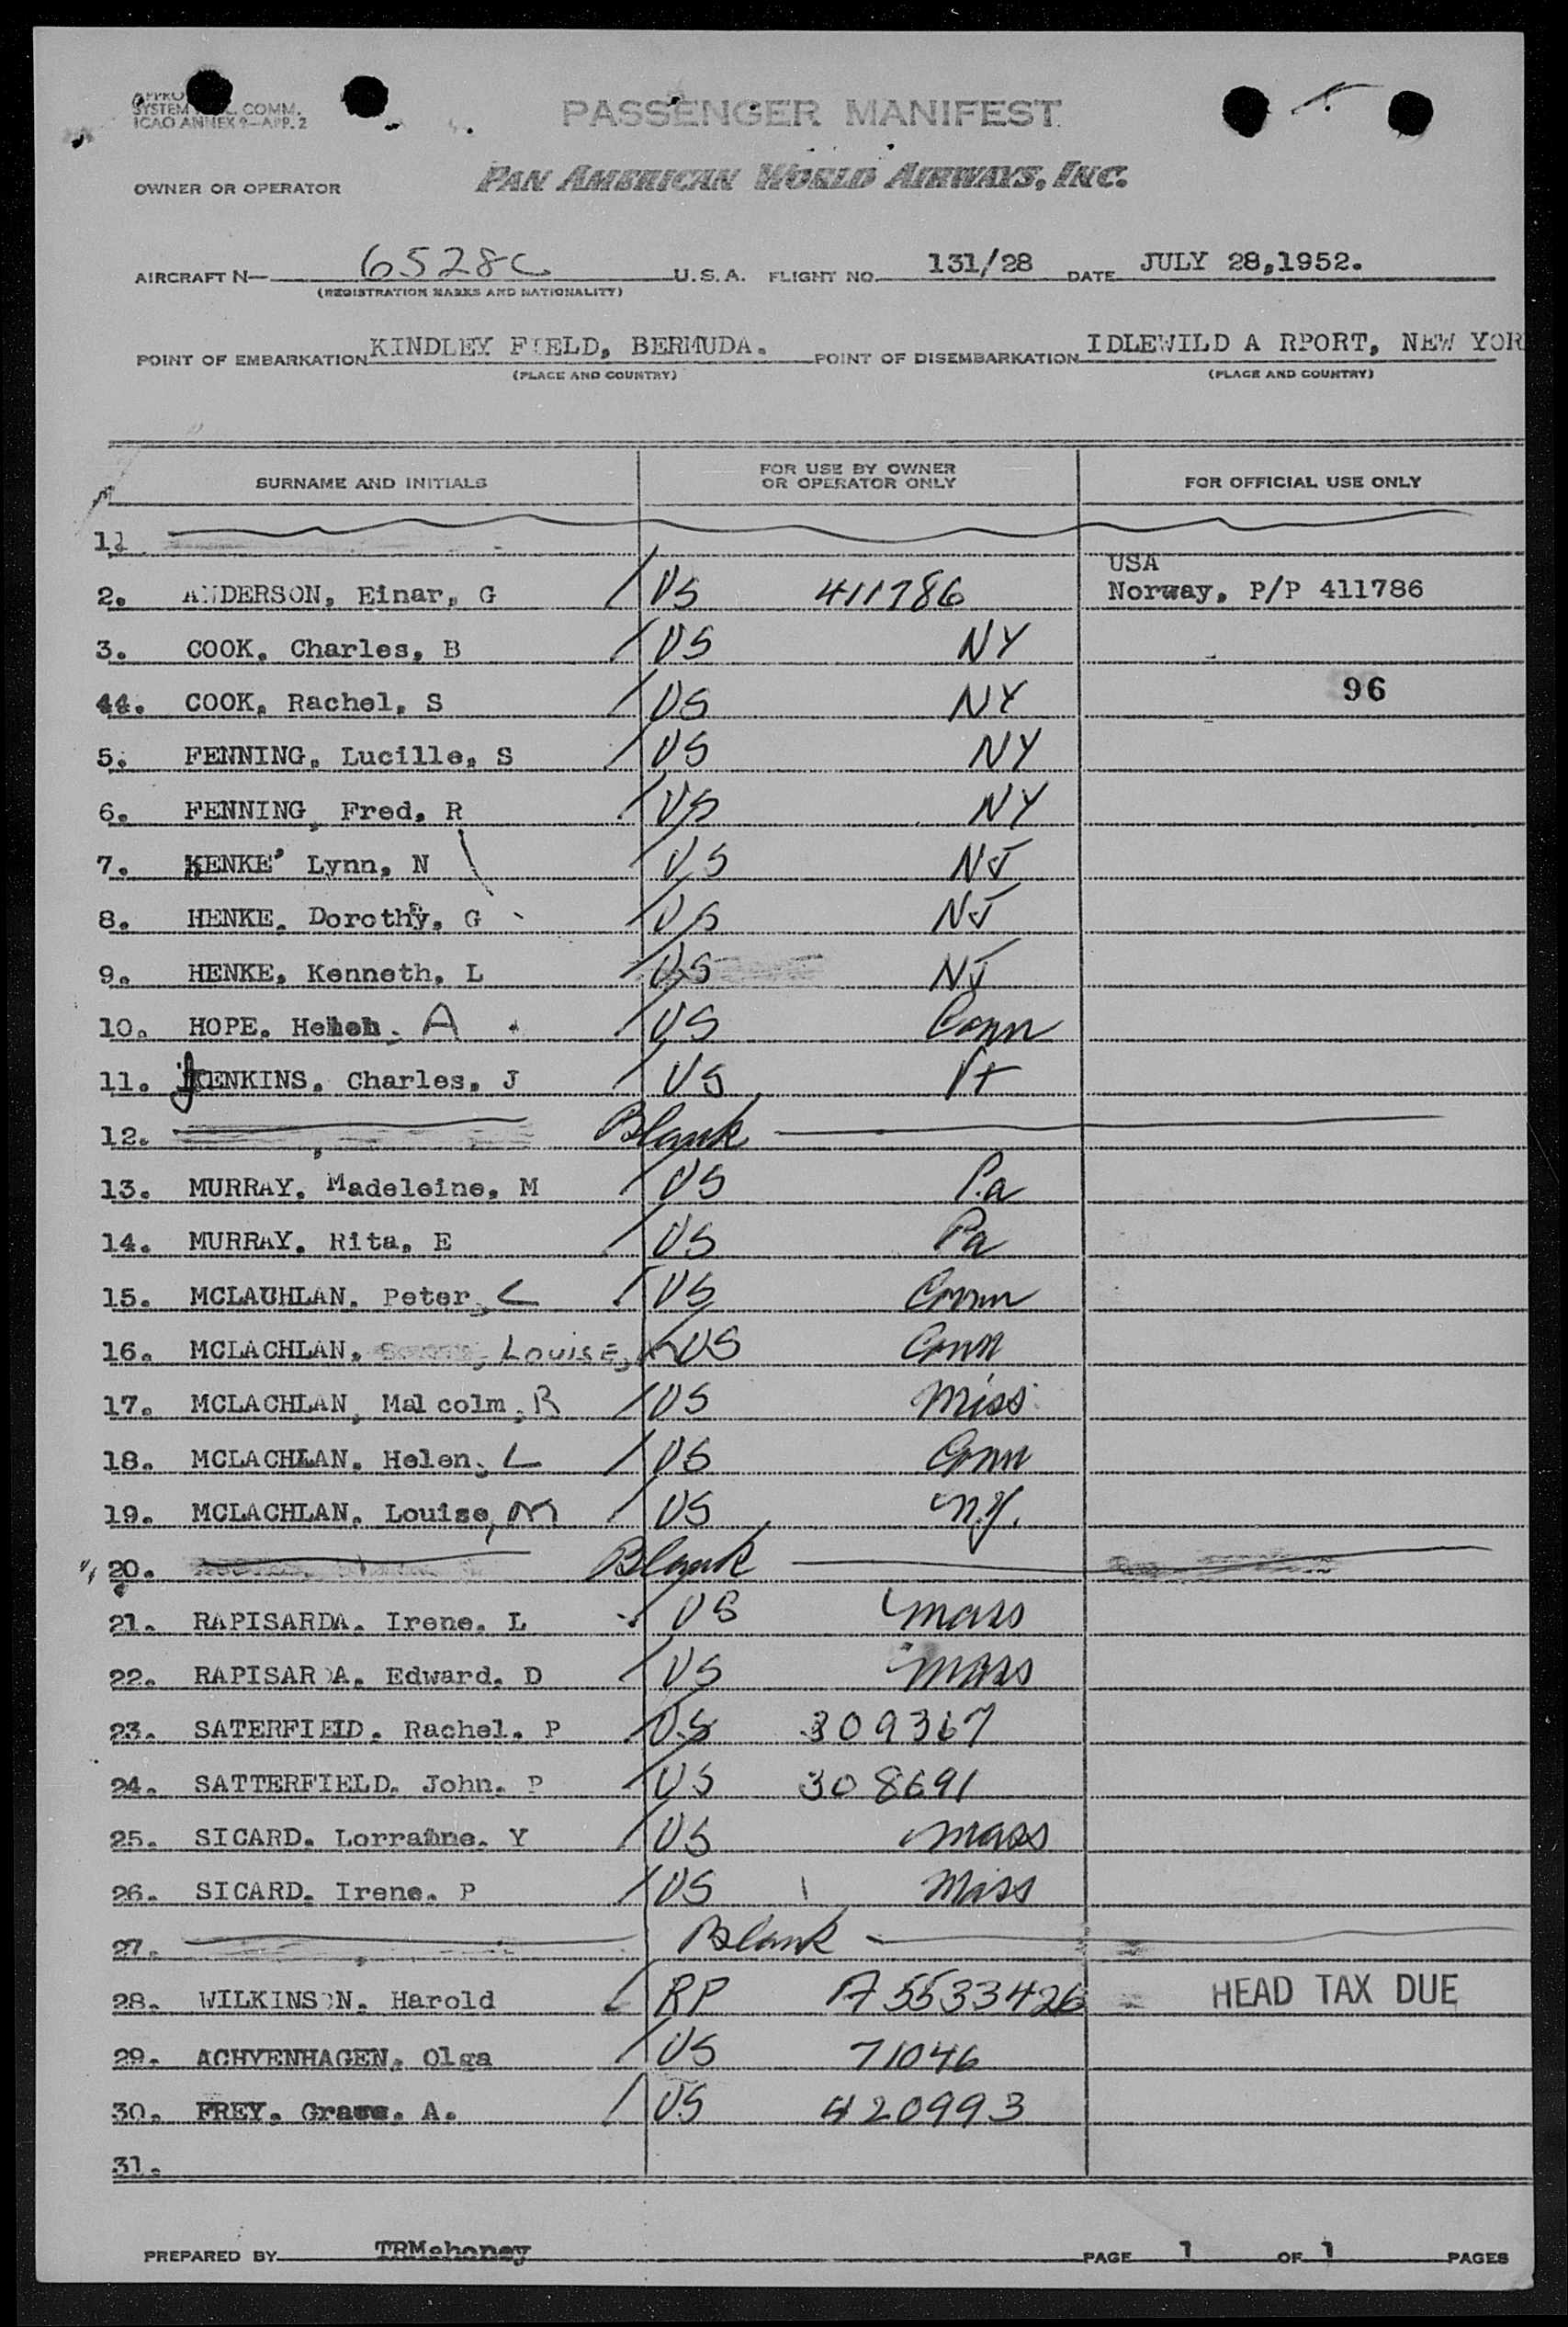 SYSTEM COMM.
ICAO ANNEX 9—APP. 2
PASSENGER MANIFEST
OWNER OR OPERATOR PAN AMERICAN WORLD AIRWAYS, INC.
AIRCRAFT N— 6528C U.S.A. FLIGHT NO. 131/28 DATE JULY 28,1952.
(REGISTRATION MARKS AND NATIONALITY)
POINT OF EMBARKATION KINDLEY FIELD, BERMUDA. POINT OF DISEMBARKATION IDLEWILD A RPORT, NEW YOR
(PLACE AND COUNTRY) (PLACE AND COUNTRY)
SURNAME AND INITIALS FOR USE BY OWNER OR OPERATOR ONLY FOR OFFICIAL USE ONLY
11
USA
2. ANDERSON, Einar, G US 411786 Norway, P/P 411786
3. COOK, Charles, B US NY
44. COOK, Rachel, S US NY 96
5. FENNING, Lucille, S US NY
6. FENNING, Fred, R US NY
7. HENKE' Lynn, N US NJ
8. HENKE, Dorothy, G US NJ
9. HENKE, Kenneth, L US NJ
10. HOPE, Helen, A US Conn
11. JENKINS, Charles, J US Vt
12. Blank
13. MURRAY, Madeleine, M US Pa
14. MURRAY, Rita, E US Pa
15. MCLAUHLAN, Peter, C US Conn
16. MCLACHLAN, LOUISE, US Conn
17. MCLACHLAN, Mal colm, R US Miss
18. MCLACHLAN, Helen, L US Conn
19. MCLACHLAN, Louise, M US N.Y.
20. Blank
21. RAPISARDA, Irene, L US Mass
22. RAPISARDA, Edward, D US Mass
23. SATERFIELD, Rachel, P US 309367
24. SATTERFIELD, John, P US 308691
25. SICARD, Lorraine, Y US Mass
26. SICARD, Irene, P US Miss
27. Blank
28. WILKINSON, Harold RP A5533426 HEAD TAX DUE
29. ACHVENHAGEN, Olga US 71046
30. FREY, Grace, A. US 420993
31.
PREPARED BY TRMahoney PAGE 1 OF 1 PAGES